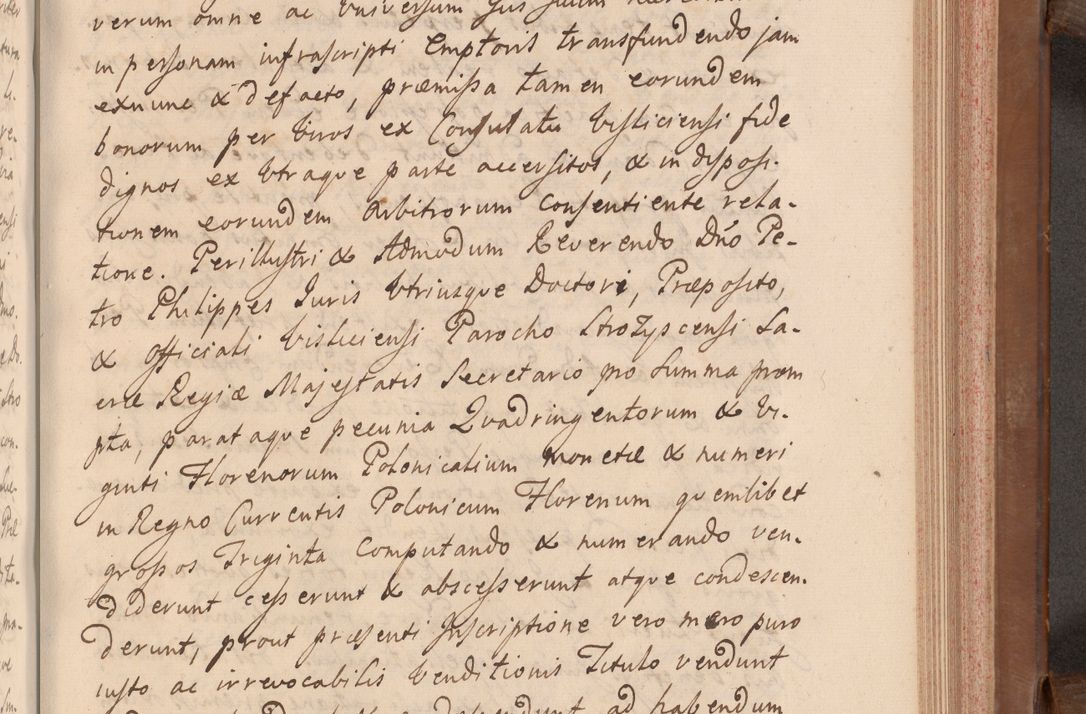 verum omne ac Universum Jus
in personam infrascripti Emptoris transfundendo jam
exnunc & defacto, præmissa tamen eorundem
bonorum per Viros ex Consulatu Visliciensi fide
dignos ex Utraque parte accersitos, & in disposi-
tionem eorundem Arbitrorum Consentiente rela-
tione. Perillustri & Admodum Reverendo Dño Pe-
tro Philippes Juris Utriusque Doctori, Præposito,
& Officiali Visliciensi Parocho Strozyscensi Sa-
cræ Regiæ Majestatis Secretario pro Summa prom
pta, parataque pecunia Quadringentorum & Vi-
ginti Florenorum Polonicalium monetæ & numeri
in Regno Currentis Polonicum Florenum quemlibet
grossos Triginta Computando & numerando ven-
diderunt cesserunt & abscesserunt atque condescen-
derunt, prout præsenti Inscriptione vero mero puro
iusto ac irrevocabilis Venditionis Titulo vendunt
ad habendum